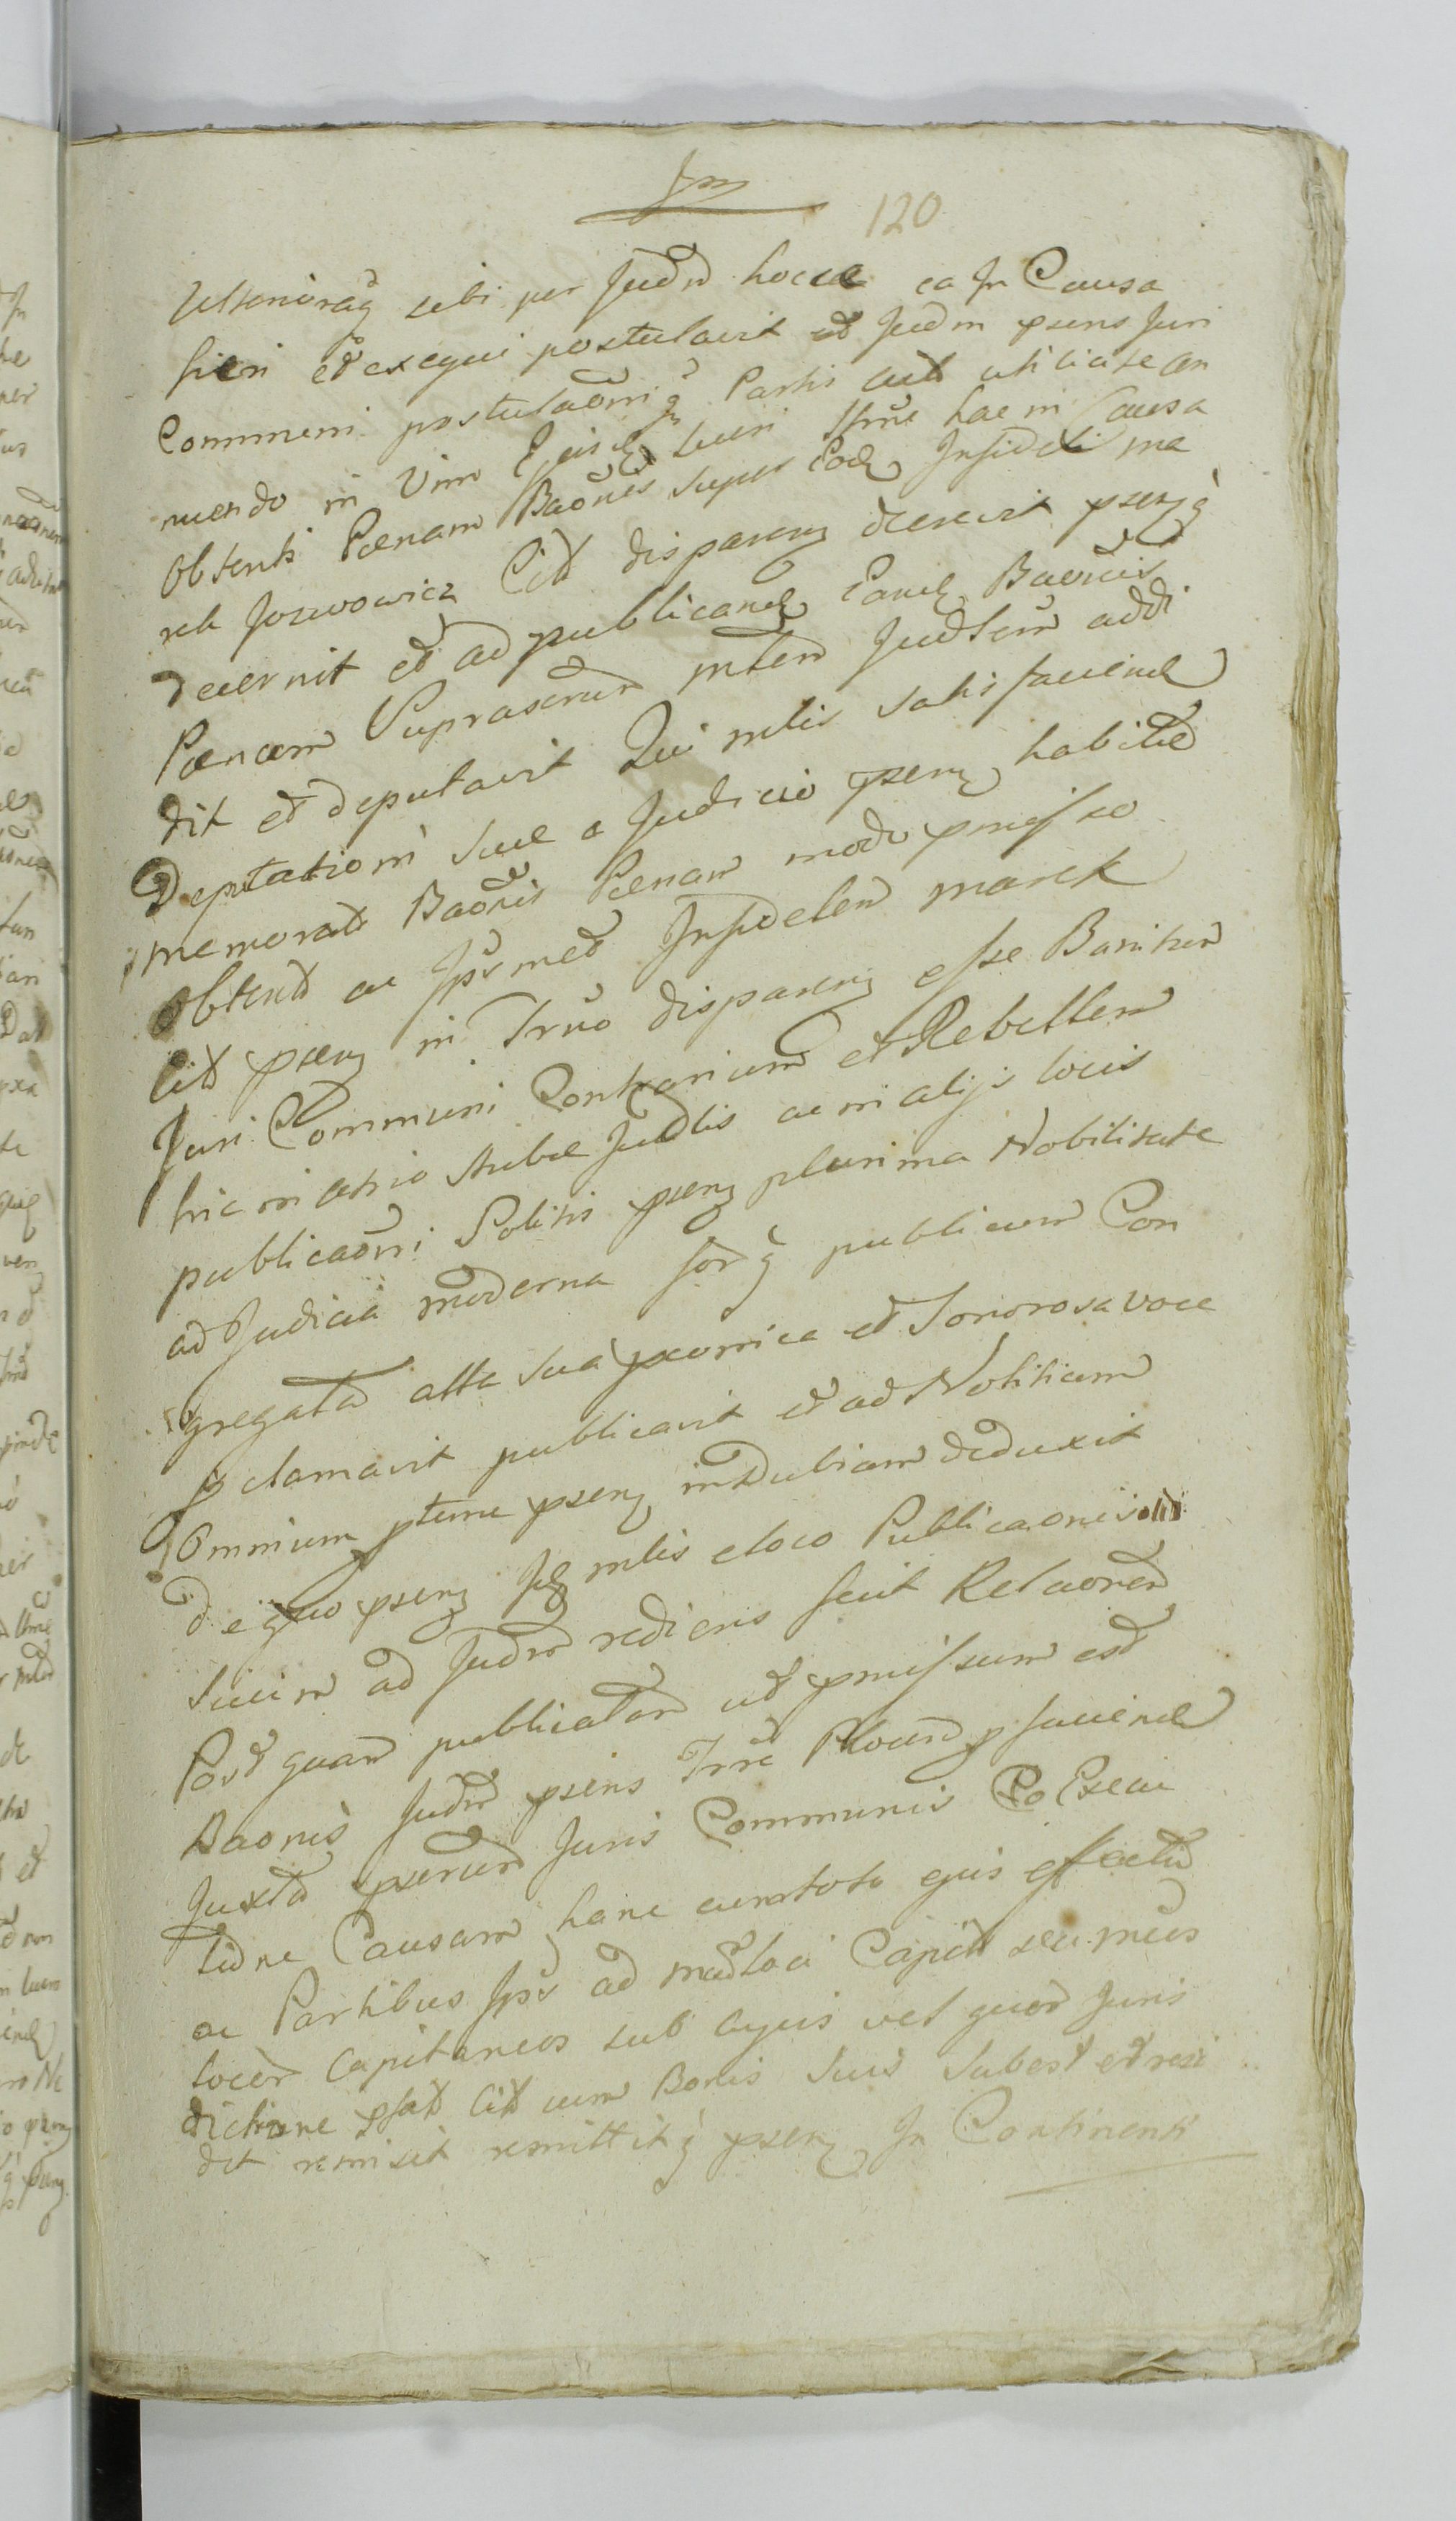 120
Ulterioraq sibi per Judm hocce ea In Causa
fieri et exequi postulavit et Judm psens Juri
Communi postulaoniq Partis aut utilitate an
nuendo in Vim Ejusd lucri Itrne hac in Causa
obtenti Paenam Baonis super Eod Infideli ma
rek Jozwowicz Citt disparen decrevit psenq
decernit et ad publicand Eand Baonis
Paenam Suprascram mlem Judlem addi
dit et deputavit Qui mlis satisfaciend
Deputationi suae a Judicio psen habitae
memorat Baonis Paenam modo pmisso
obtent ac Ipsmet Infidelem marek
Citt psen in Trno disparen esse Banitum
Juri Communi Contrarium et Rebellem
hic in atrio stubae Judlis ac in alijs locis
publicaoni Solitis psen plurima Nobilitate
ad Judicia moderna forq publicum Con
gregata alta sua praeconica et Sonorosa voce
pclamavit publicavit et ad Notitiam
Omnium ptune psen indubiam deduxit
de quo psen Id mlis e loco Publicaonis
Suum ad Judm rediens fecit Relaonem
Post quam publicatam ut pmissum est
Baonis Judm psens Trre Plocen psaciend
Juxta pscrum Juris Communis Pro Execu
tione Causam hanc cum toto ejus effectu
ac Partibus Ips ad md loci Capit seu meus
locor Capitaneos sub cujus vel quor Juris
dictione pfat Citt cum Bonis Suis Subest et resi
det remisit remittitq psen In Continenti